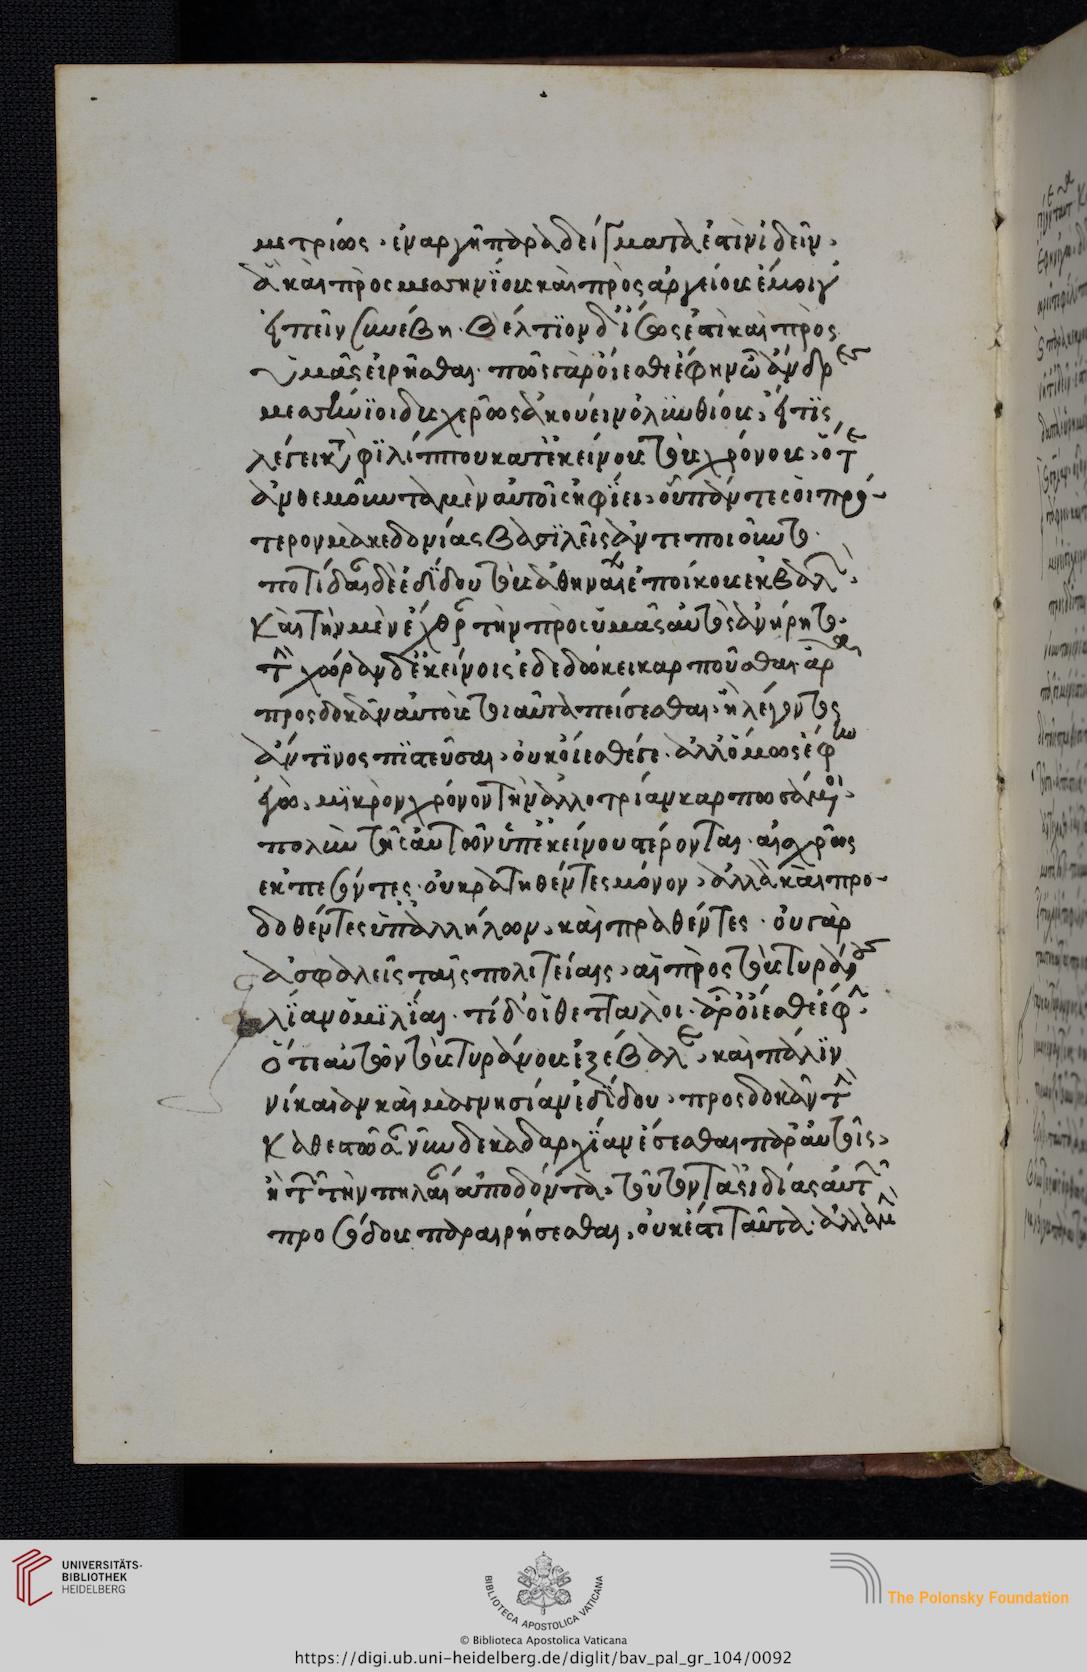 μετρίως· ἐναργῆ παραδείγματα ἔστιν ἰδεῖν·
ἃ καὶ πρὸς μεσσηνίους καὶ πρὸς ἀργείους ἔμοιγ'
εἰπεῖν συνέβη· βέλτιον δ' ἴσως ἐστὶ καὶ πρὸς
ὑμᾶς εἰρῆσθαι· πῶς γὰρ οἴεσθε ἔφην ὦ ἄνδρες
μεσσήνιοι δυσχερῶς ἀκούειν ὀλυνθίους, εἴ τις
λέγει κατὰ φιλίππου κατ' ἐκείνους τοὺς χρόνους· ὅτε
ἀνθεμοῦντα μὲν αὐτοῖς ἠφίει, οὗ πάντες οἱ πρό-
τερον μακεδονίας βασιλεῖς ἀντεποιοῦντο·
ποτίδαιαν δὲ ἐδίδου τοὺς ἀθηναίων ἐποίκους ἐκβαλών·
καὶ τὴν μὲν ἔχθραν τὴν πρὸς ὑμᾶς αὐτὸς ἀνήρητο·
τὴν χώραν δ' ἐκείνοις ἐδεδώκει καρποῦσθαι· ἆρα
προσδοκᾶν αὐτοὺς τοιαῦτα πείσεσθαι· ἢ λέγοντος
ἄν τινος πιστεῦσαι, οὐκ οἴεσθέ γε· ἀλλ' ὅμως ἔφην
ἐγώ, μικρὸν χρόνον τὴν ἀλλοτρίαν καρπωσάμενοι,
πολὺν τῆς αὑτῶν ὑπ' ἐκείνου στέρονται· αἰσχρῶς
ἐκπεσόντες· οὐ κρατηθέντες μόνον, ἀλλὰ καὶ προ-
δοθέντες ὑπ' ἀλλήλων, καὶ πραθέντες· οὐ γὰρ
ἀσφαλεῖς ταῖς πολιτείαις, αἱ πρὸς τοὺς τυράννους
λίαν ὁμιλίαι· τί δ' οἱ θετταλοί· ἆρ' οἴεσθε ἔφην·
ὅτι αὐτῶν τοὺς τυράννους ἐξέβαλεν, καὶ πάλιν
νίκαιαν καὶ μαγνησίαν ἐδίδου, προσδοκᾶν τὴν
καθεστῶσαν νῦν δεκαδαρχίαν ἔσεσθαι παρ' αὐτοῖς,
ἢ τὸν τὴν πυλαίαν ἀποδόντα, τοῦτον τὰς ἰδίας αὐτῶν
προσόδους παραιρήσεσθαι, οὐκ ἔστι ταῦτα· ἀλλὰ μὴν
UNIVERSITÄTS-
BIBLIOTHEK
HEIDELBERG
BIBLIOTECA APOSTOLICA VATICANA
© Biblioteca Apostolica Vaticana
The Polonsky Foundation
https://digi.ub.uni-heidelberg.de/diglit/bav_pal_gr_104/0092